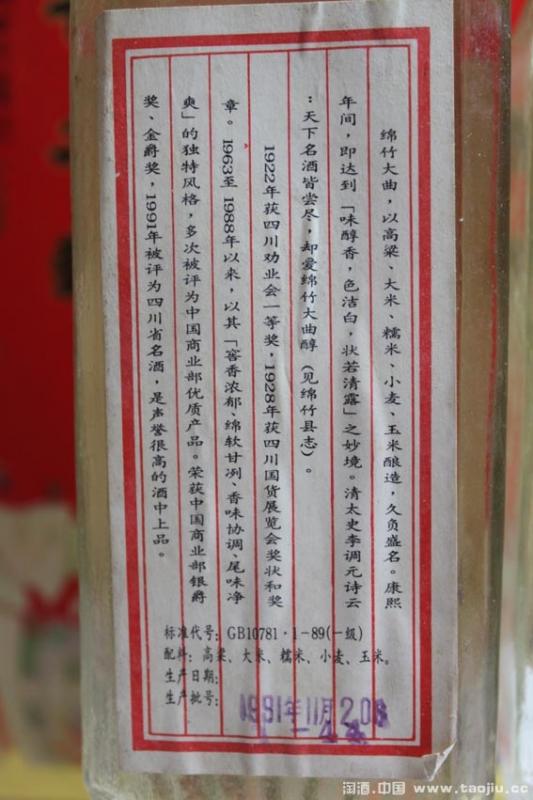 绵竹大曲，以高粱、大米、糯米、小麦、玉米酿造，久负盛名。康熙
年间，即达到「味醇香，色洁白，状若清露」之妙境。清太史李调元诗云
：天下名酒皆尝尽，却爱绵竹大曲醇（见绵竹县志）。
1922年获四川劝业会一等奖，1928年获四川国货展览会奖状和奖
章。1963至1988年以来，以其「窖香浓郁、绵软甘冽、香味协调、尾味净
爽」的独特风格，多次被评为中国商业部优质产品。荣获中国商业部银爵
奖、金爵奖，1991年被评为四川省名酒，是声誉很高的酒中上品。
标准代号：GB10781·1-89(一级)
配料：高粱、大米、糯米、小麦、玉米。
生产日期：
生产批号：
1991年11月20日
淘酒.中国 www.taojiu.cc